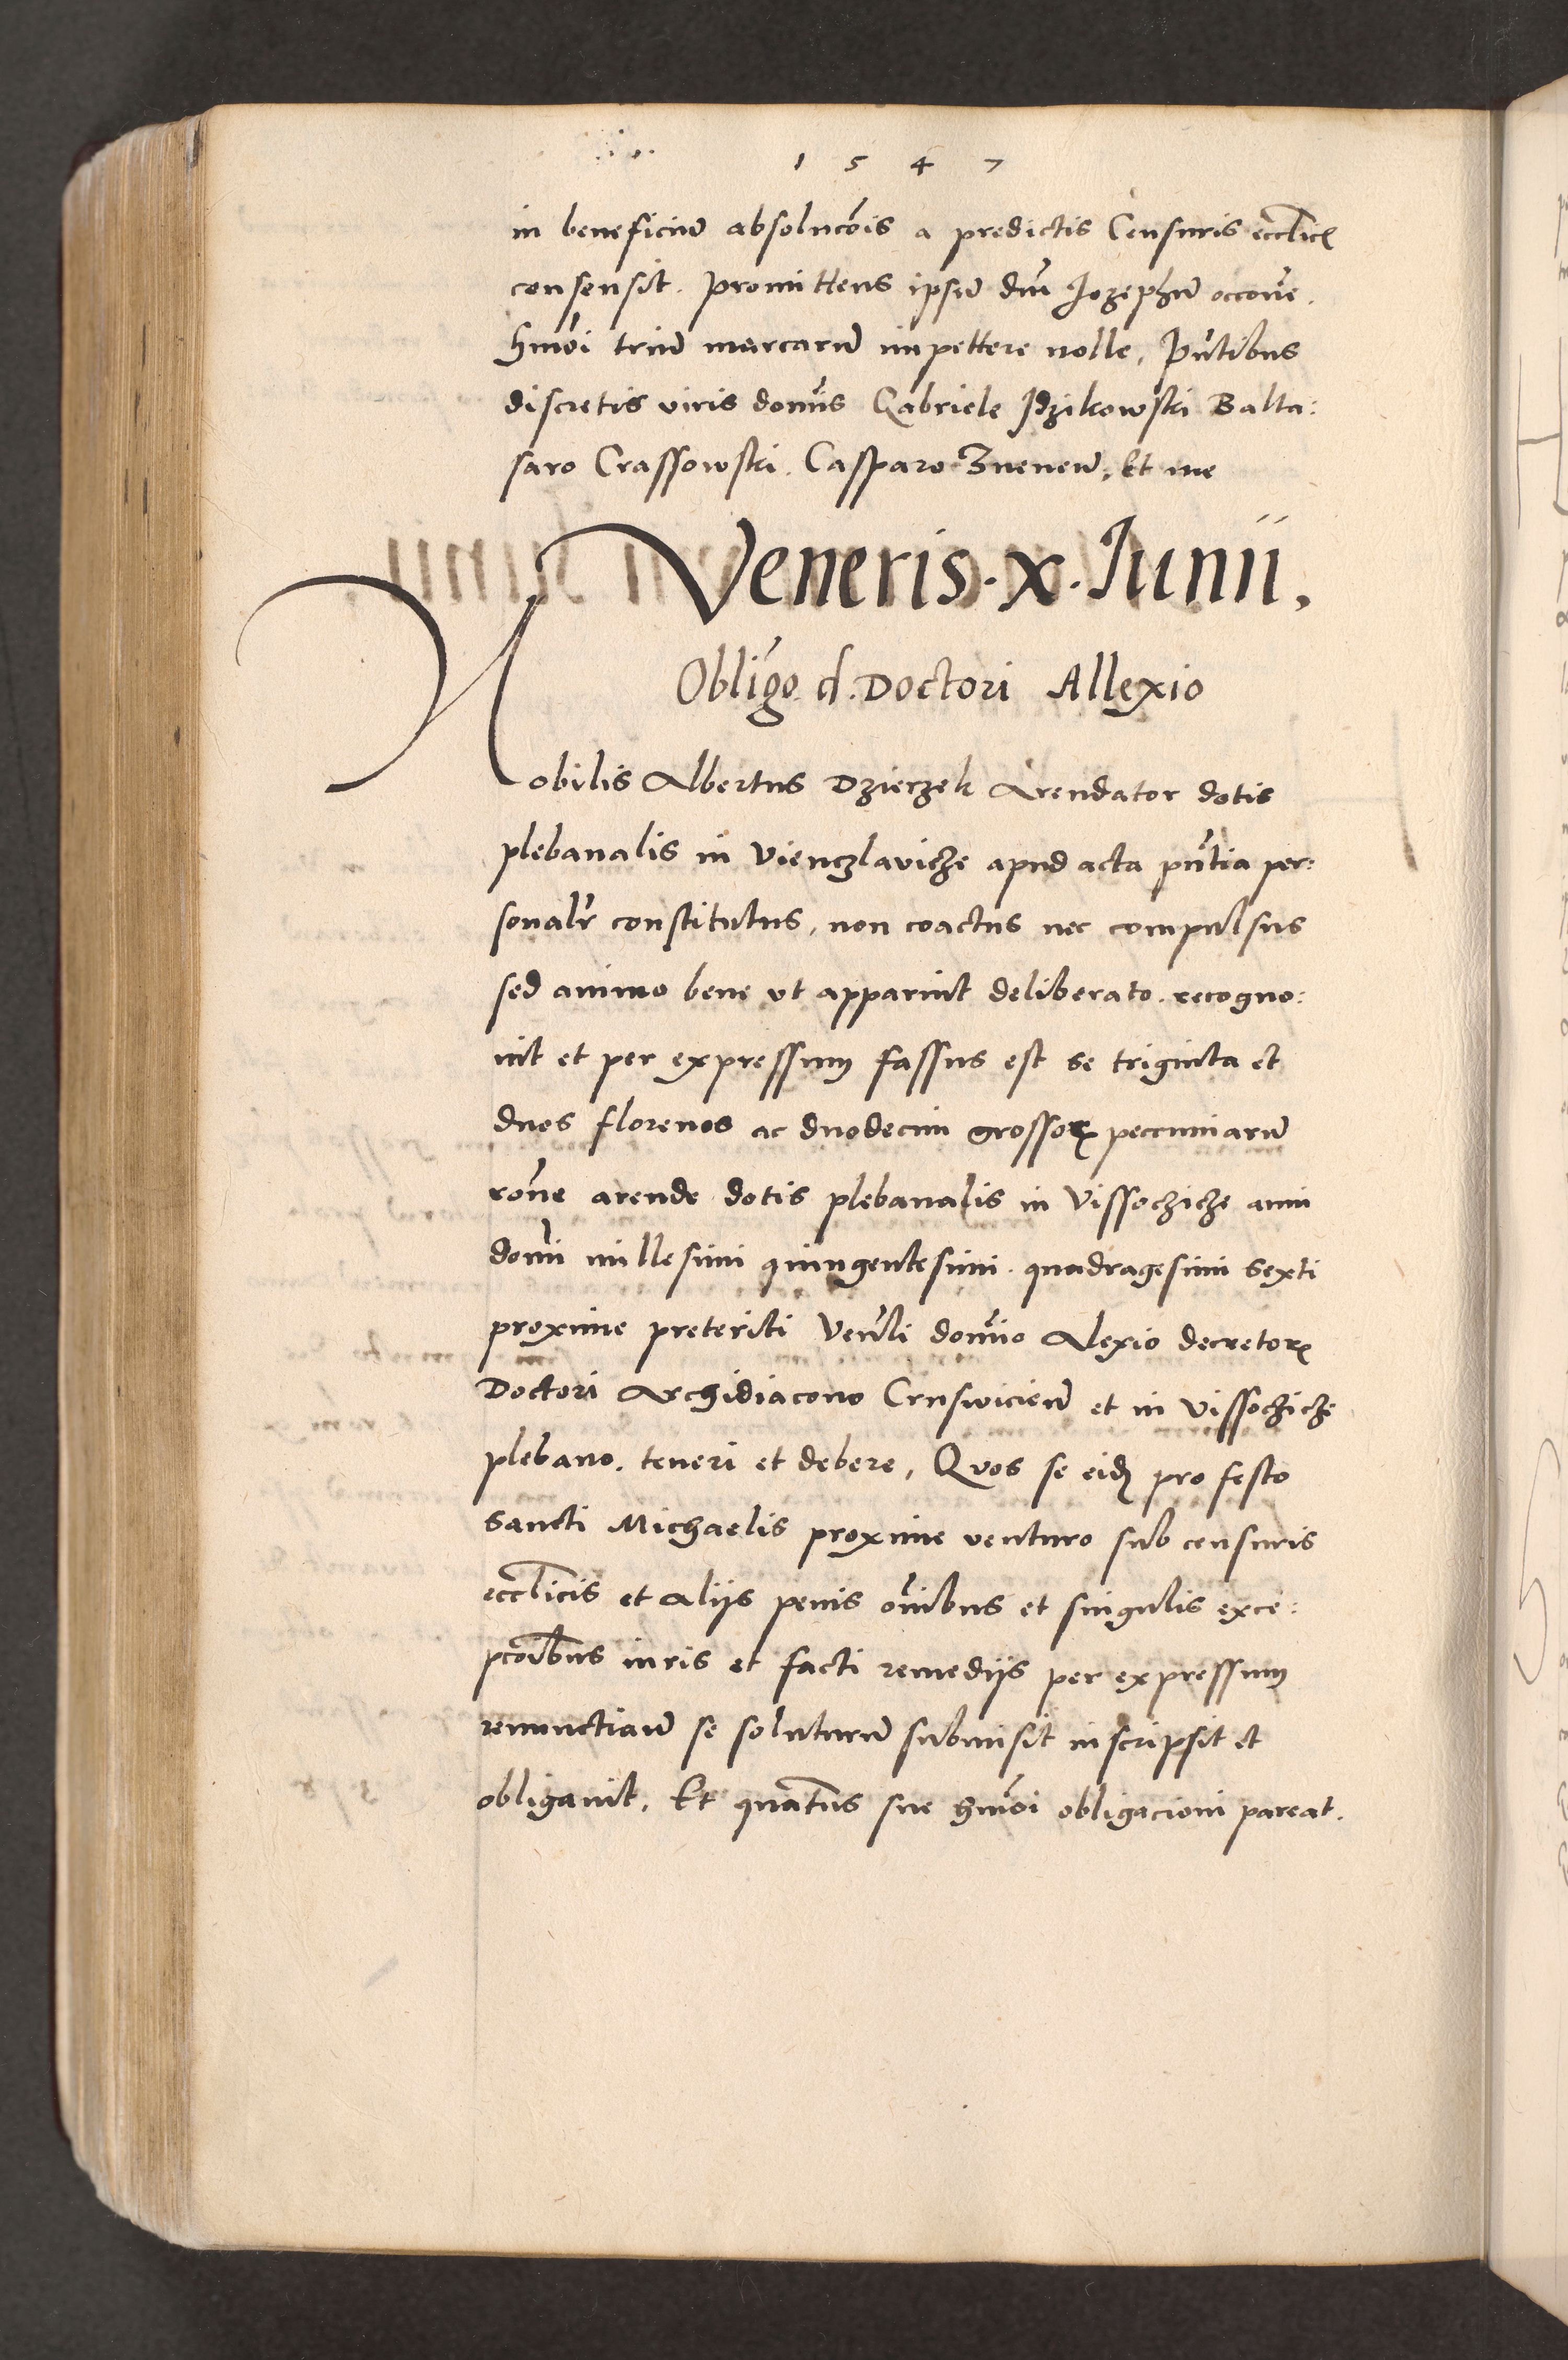 1 5 4 7
in beneficiū absolucōis a predictis Censuris eccl̄ic
consensit. promittens ipsū dn̄m Jozephū occōne.
hmōi triū marcarū impettere nolle, Pn̄tibus
discretis viris domīs Gabriele Idzikowski Balta:
saro Crassowski. Casparo Znenen̄. Et me
Veneris . x . Junii,
Oblīgo d. Doctori Allexio
Nobilis Albertus Dzierzek Arendator dotis
plebanalis in Vienczlaviche apud acta pn̄tia per:
sonalr̄ constitutus, non coactus nec compulsus
sed animo bene ut apparuit deliberato. recogno:
vit et per expressum fassus est se triginta et
duos florenos ac duodecim grossoꝝ peccuniarū
rōne arende dotis plebanalis in Vissochiche anni
domī millesimi quingentesimi. quadragesimi sexti
proxime preteriti Ven̄li domīo Alexio decretoꝝ
Doctori Archidiacono Crusvicien̄ et in Vissochiche
plebano. teneri et debere, Quos se eidꝫ pro festo
Sancti Michaelis proxime venturo sub censuris
eccl̄icis et alijs penis om̄ibus et singulis exce:
pcōibus iuris et facti remedijs per expressum
renunctian̄ se soluturū submisit inscripsit et
obligavit. Et quaten̄us sue hmōi obligacioni pareat.